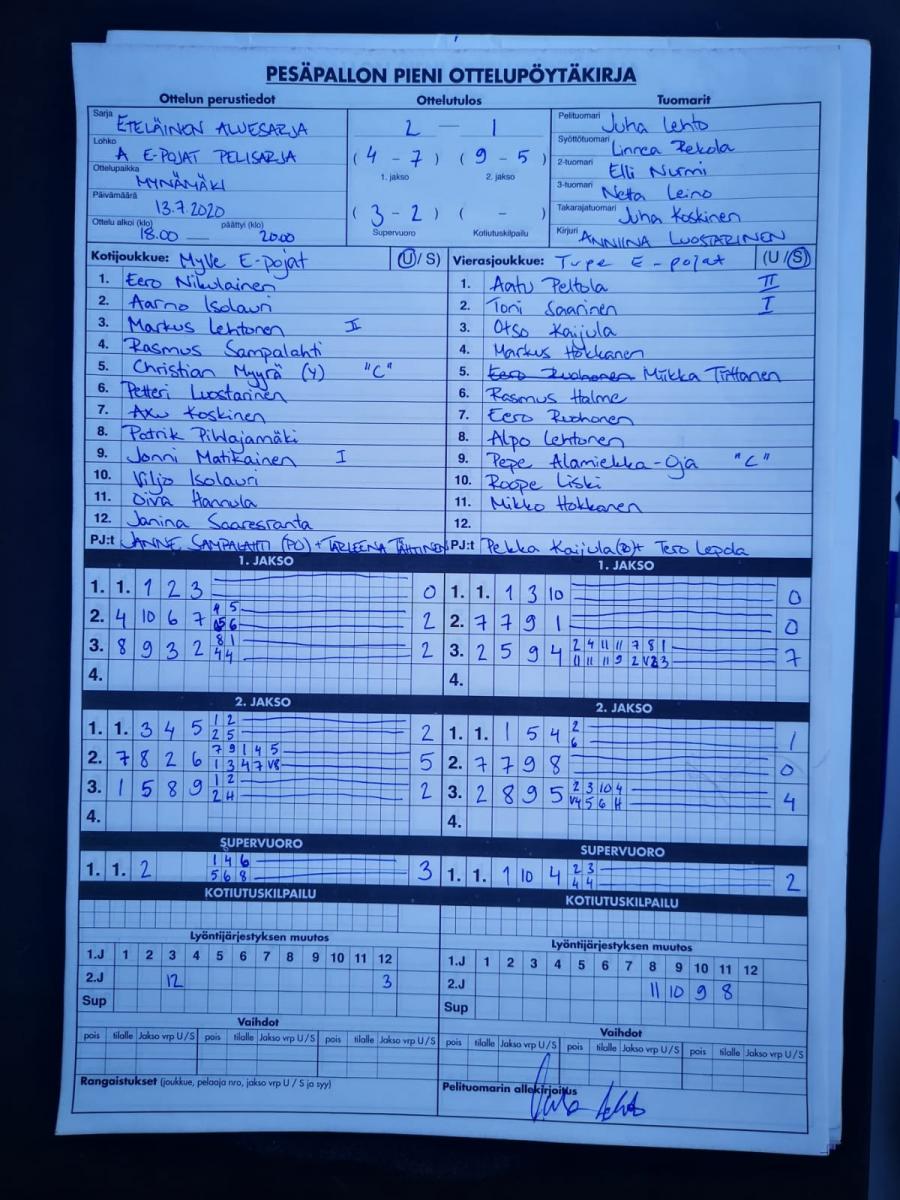 PESÄPALLON PIENI OTTELUPÖYTÄKIRJA
Ottelun perustiedot
Sarja ETELÄINEN ALUESARJA
Lohko A E-POJAT PELISARJA
Ottelupaikka MYNÄMÄKI
Päivämäärä 13.7.2020
Ottelu alkoi (klo) 18.00 — päättyi (klo) 20.00
Ottelutulos
2 — 1
( 4 - 7 ) ( 9 - 5 )
1. jakso 2. jakso
( 3 - 2 ) ( - )
Supervuoro Kotiutuskilpailu
Tuomarit
Pelituomari Juha Lehto
Syöttötuomari Linnea Rekola
2-tuomari Elli Nurmi
3-tuomari Netta Leino
Takarajatuomari Juha Koskinen
Kirjuri ANNIINA LUOSTARINEN
Kotijoukkue: MyVe E-pojat (U/S)
1. Eero Nikulainen
2. Aarno Isolauri
3. Markus Lehtonen II
4. Rasmus Sampalahti
5. Christian Myyrä (Y) "C"
6. Petteri Luostarinen
7. Axu Koskinen
8. Patrik Pihlajamäki
9. Jonni Matikainen I
10. Viljo Isolauri
11. Oiva Hannula
12. Janina Saaresranta
PJ:t JANNE SAMPALAHTI (PO) + TARLEENA TÄHTINEN
Vierasjoukkue: TuPe E-pojat (U/S)
1. Aatu Peltola II
2. Toni Saarinen I
3. Otso Kaijula
4. Markus Hokkanen
5. Eero Ruohonen Miikka Tirttanen
6. Rasmus Halme
7. Eero Ruohonen
8. Alpo Lehtonen
9. Pepe Alamiekka-Oja "C"
10. Roope Liski
11. Mikko Hokkanen
12.
PJ:t Pekka Kaijula + Tero Lepola
1. JAKSO
1. 1. 1 2 3 0
2. 4 10 6 7 2
3. 8 9 3 2 8 1 4 4 2
4.
1. JAKSO
1. 1. 1 3 10 0
2. 7 7 9 1 0
3. 2 5 9 4 2 4 11 11 7 8 1 7
4.
2. JAKSO
1. 1. 3 4 5 1 2 2 5 2
2. 7 8 2 6 7 9 1 4 5 1 3 4 7 V8 5
3. 1 5 8 9 1 2 2 H 2
4.
2. JAKSO
1. 1. 1 5 4 2 6 1
2. 7 7 9 8 0
3. 2 8 9 5 2 3 10 4 V4 5 6 H 4
4.
SUPERVUORO
1. 1. 2 1 4 6 5 6 8 3
SUPERVUORO
1. 1. 1 10 4 2 3 4 4 2
KOTIUTUSKILPAILU
KOTIUTUSKILPAILU
Lyöntijärjestyksen muutos
1.J 1 2 3 4 5 6 7 8 9 10 11 12
2.J 12 3
Sup
Lyöntijärjestyksen muutos
1.J 1 2 3 4 5 6 7 8 9 10 11 12
2.J 11 10 9 8
Sup
Vaihdot
pois tilalle Jakso vrp U/S pois tilalle Jakso vrp U/S pois tilalle Jakso vrp U/S
Vaihdot
pois tilalle Jakso vrp U/S pois tilalle Jakso vrp U/S pois tilalle Jakso vrp U/S
Rangaistukset (joukkue, pelaaja nro, jakso vrp U / S ja syy)
Pelituomarin allekirjoitus